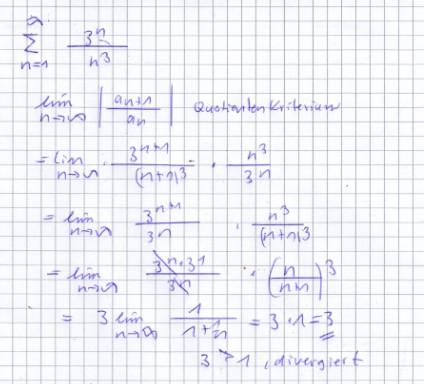 ∞
∑ 3^n / n^3
n=1
lim n→∞ | a_{n+1} / a_n | Quotientenkriterium
= lim n→∞ · 3^{n+1} / (n+1)^3 · n^3 / 3^n
= lim n→∞ 3^{n+1} / 3^n · n^3 / (n+1)^3
= lim n→∞ 3^n · 3^1 / 3^n · (n / n+1)^3
= 3 lim n→∞ 1 / 1+1/n = 3 · 1 = 3
3 > 1, divergiert